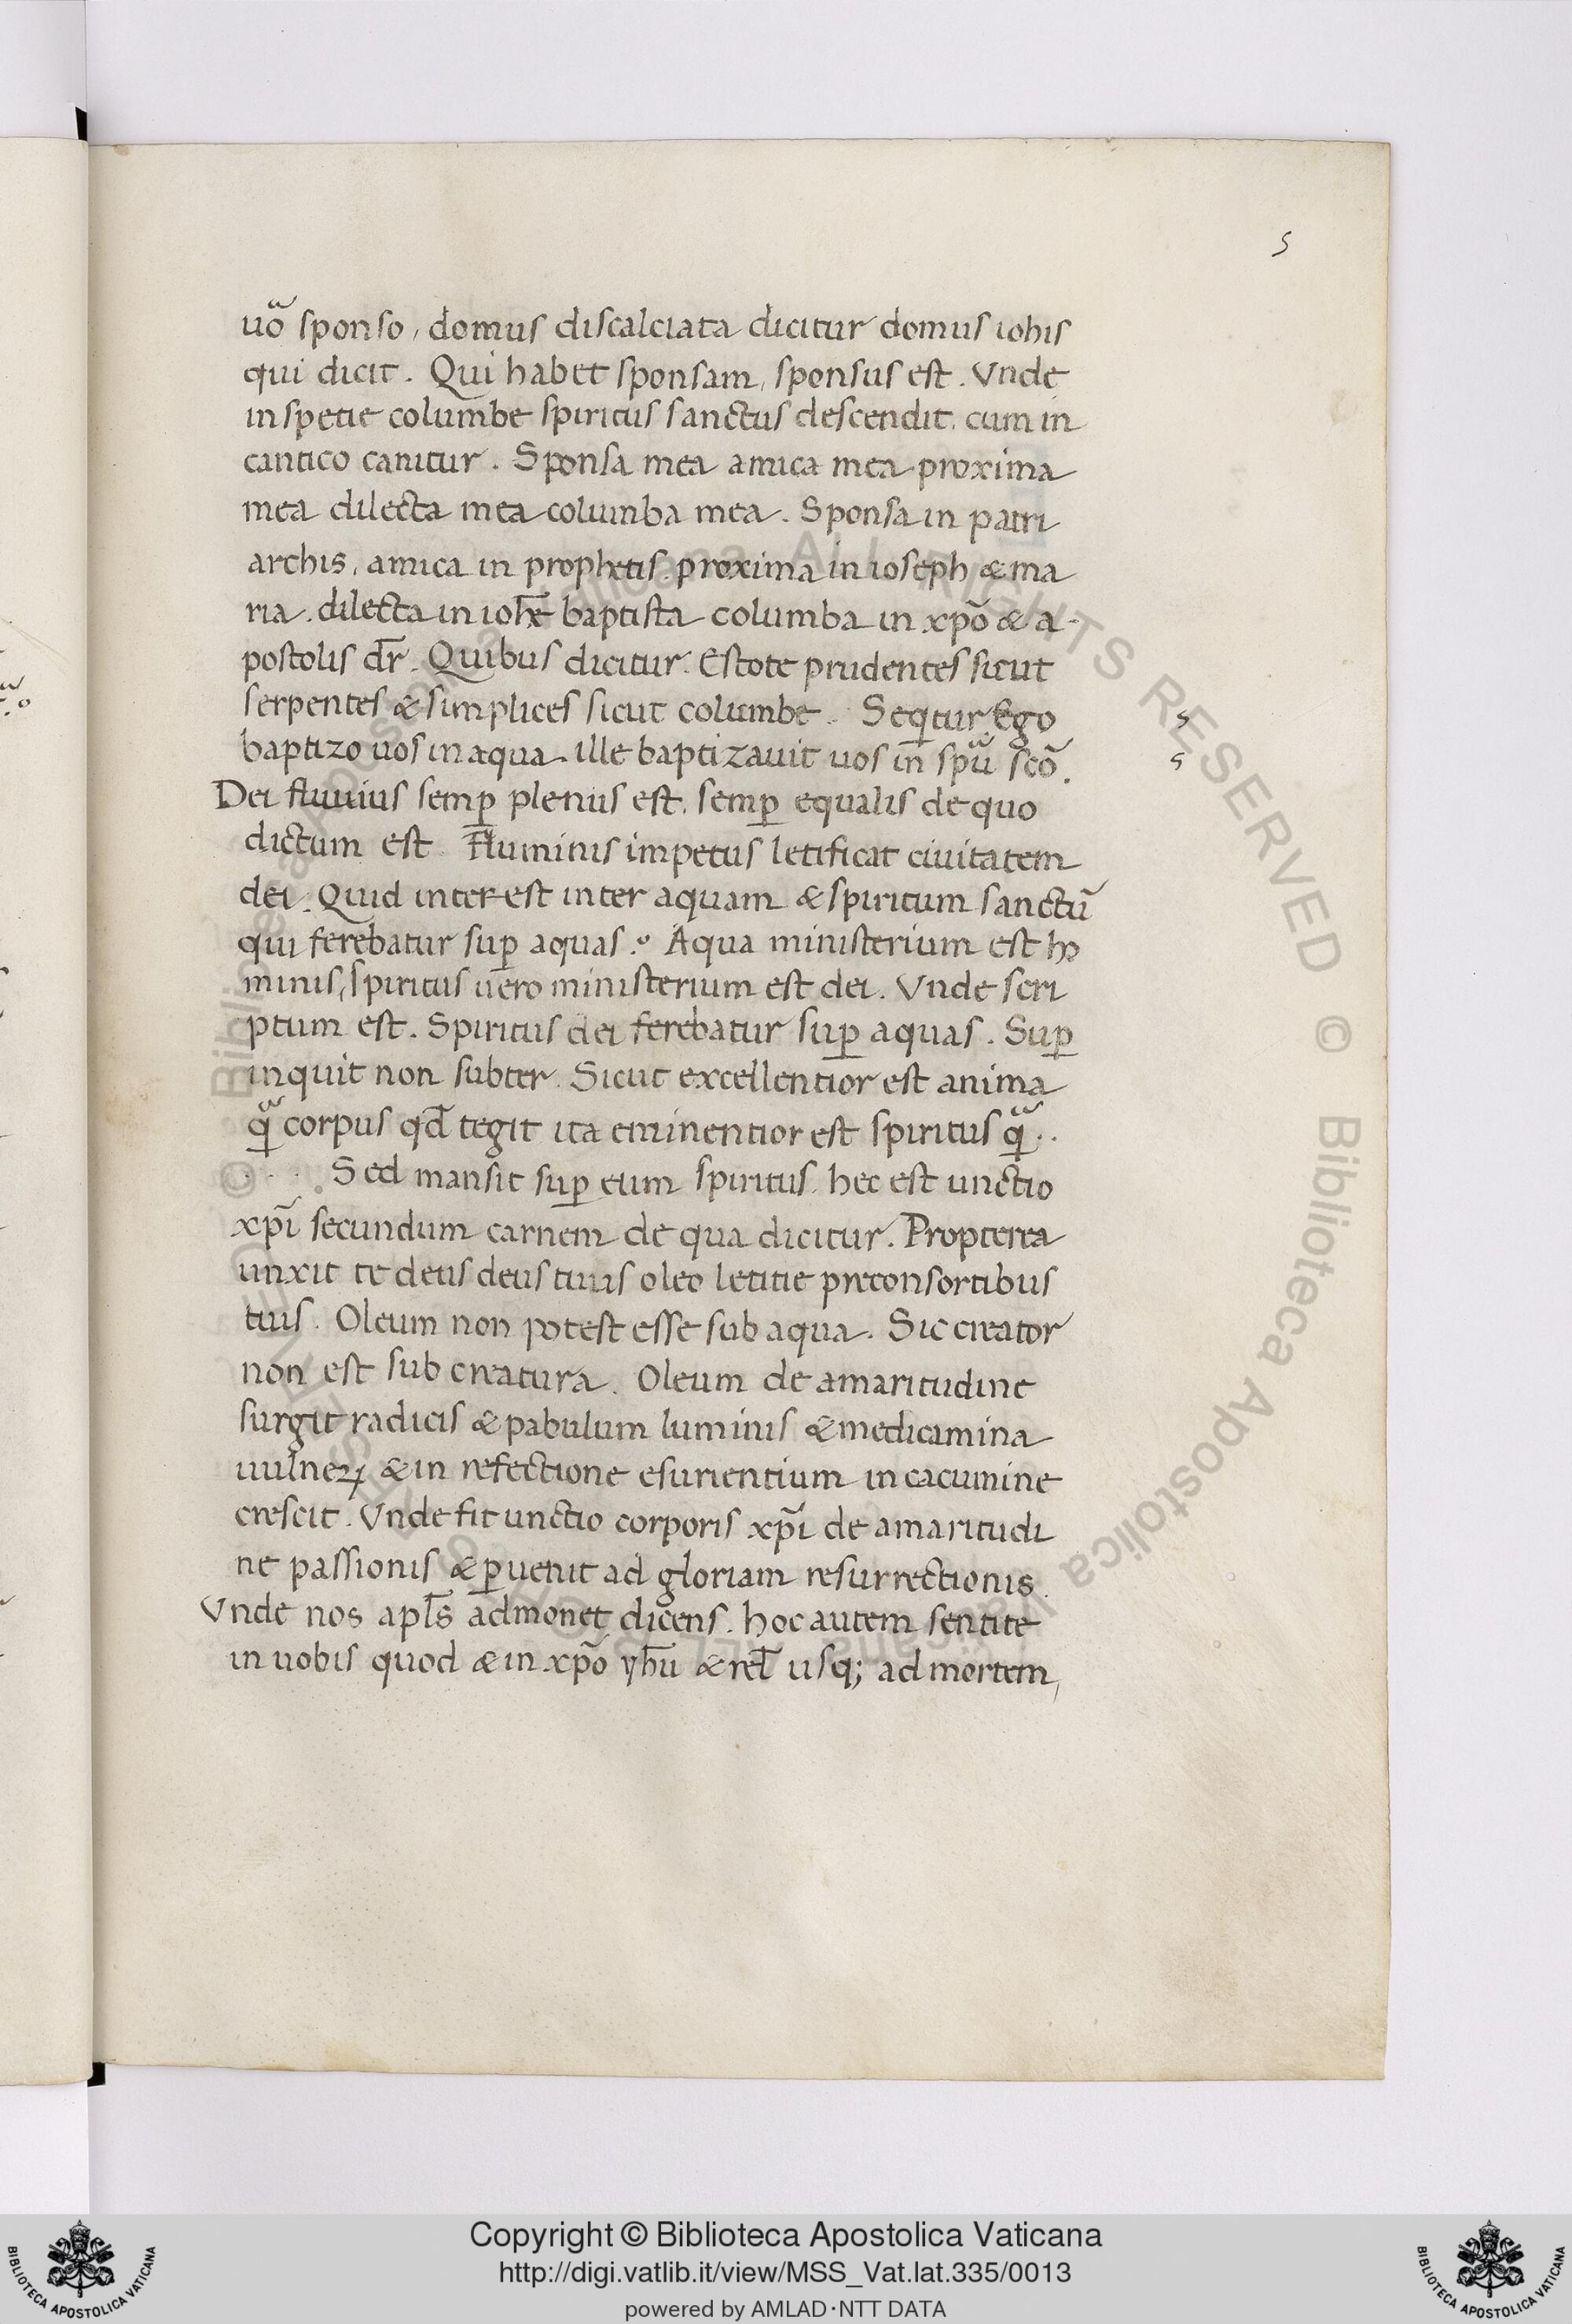 5
uõ sponso, domus discalciata dicitur domus iohis
qui dicit. Qui habet sponsam, sponsus est. Vnde
in spetie columbe spiritus sanctus descendit. cum in
cantico canitur. Sponsa mea amica mea proxima
mea dilecta mea columba mea. Sponsa in patri
archis, amica in prophetis. proxima in ioseph & ma
ria. dilecta in ioh̅e baptista columba in xp̃o & a-
postolis dr̅. Quibus dicitur. Estote prudentes sicut
serpentes & simplices sicut columbe. Seq̅tur. Ego
baptizo uos in aqua. ille baptizauit uos in sp̃u sc̃o.
Dei fluuius semꝑ plenus est. semꝑ equalis de quo
dictum est. Fluminis impetus letificat ciuitatem
dei. Quid inter est inter aquam & spiritum sanctũ
qui ferebatur suꝑ aquas. Aqua ministerium est ho
minis, spiritus uero ministerium est dei. Vnde scri
ptum est. Spiritus dei ferebatur suꝑ aquas. Suꝑ
inquit non subter. Sicut excellentior est anima
q̃ corpus qd̅ tegit ita eminentior est spiritus q̃..
.... Sed mansit suꝑ eum spiritus. hec est unctio
xp̃i secundum carnem de qua dicitur. Propterea
unxit te deus deus tuus oleo letitie preconsortibus
tuis. Oleum non potest esse sub aqua. Sic creator
non est sub creatura. Oleum de amaritudine
surgit radicis & pabulum luminis & medicamina
uulneꝝ & in refectione esurientium in cacumine
crescit. Vnde fit unctio corporis xp̃i de amaritudi
ne passionis & ꝑuenit ad gloriam resurrectionis.
Vnde nos apl̅s admonet dicens. hoc autem sentite
in uobis quod & in xp̃o yh̅u & rel̅ usq; ad mortem,
5
5
© Biblioteca Apostolica Vaticana ALL RIGHTS RESERVED
Copyright © Biblioteca Apostolica Vaticana
http://digi.vatlib.it/view/MSS_Vat.lat.335/0013
powered by AMLAD·NTT DATA
BIBLIOTECA APOSTOLICA VATICANA
BIBLIOTECA APOSTOLICA VATICANA